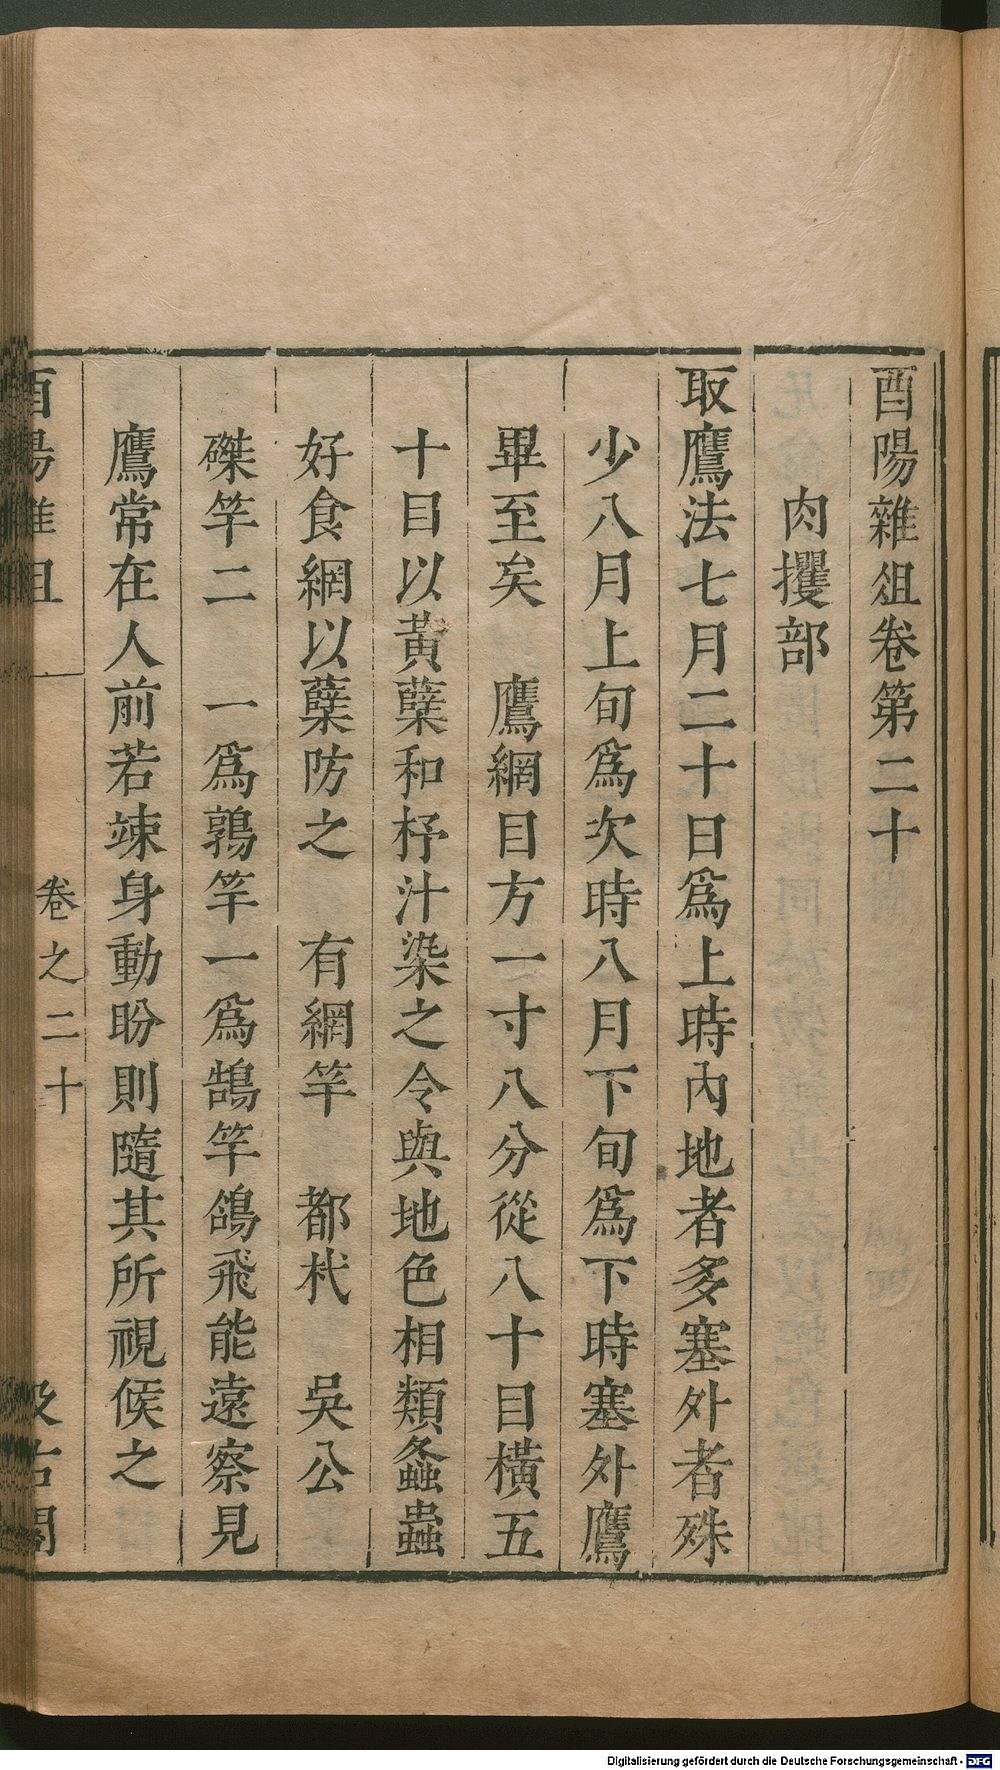 酉陽雜俎卷第二十
肉攫部
取鷹法七月二十日爲上時內地者多塞外者殊
少八月上旬爲次時八月下旬爲下時塞外鷹
畢至矣　鷹網目方一寸八分從八十目橫五
十目以黃蘗和杼汁染之令與地色相類螽蟲
好食網以蘗防之　有網竿　都杙　吳公
磔竿二　一爲鶉竿一爲鵠竿鴿飛能遠察見
鷹常在人前若竦身動盼則隨其所視候之
酉陽雜俎　卷之二十　汲古閣
Digitalisierung gefördert durch die Deutsche Forschungsgemeinschaft - DFG